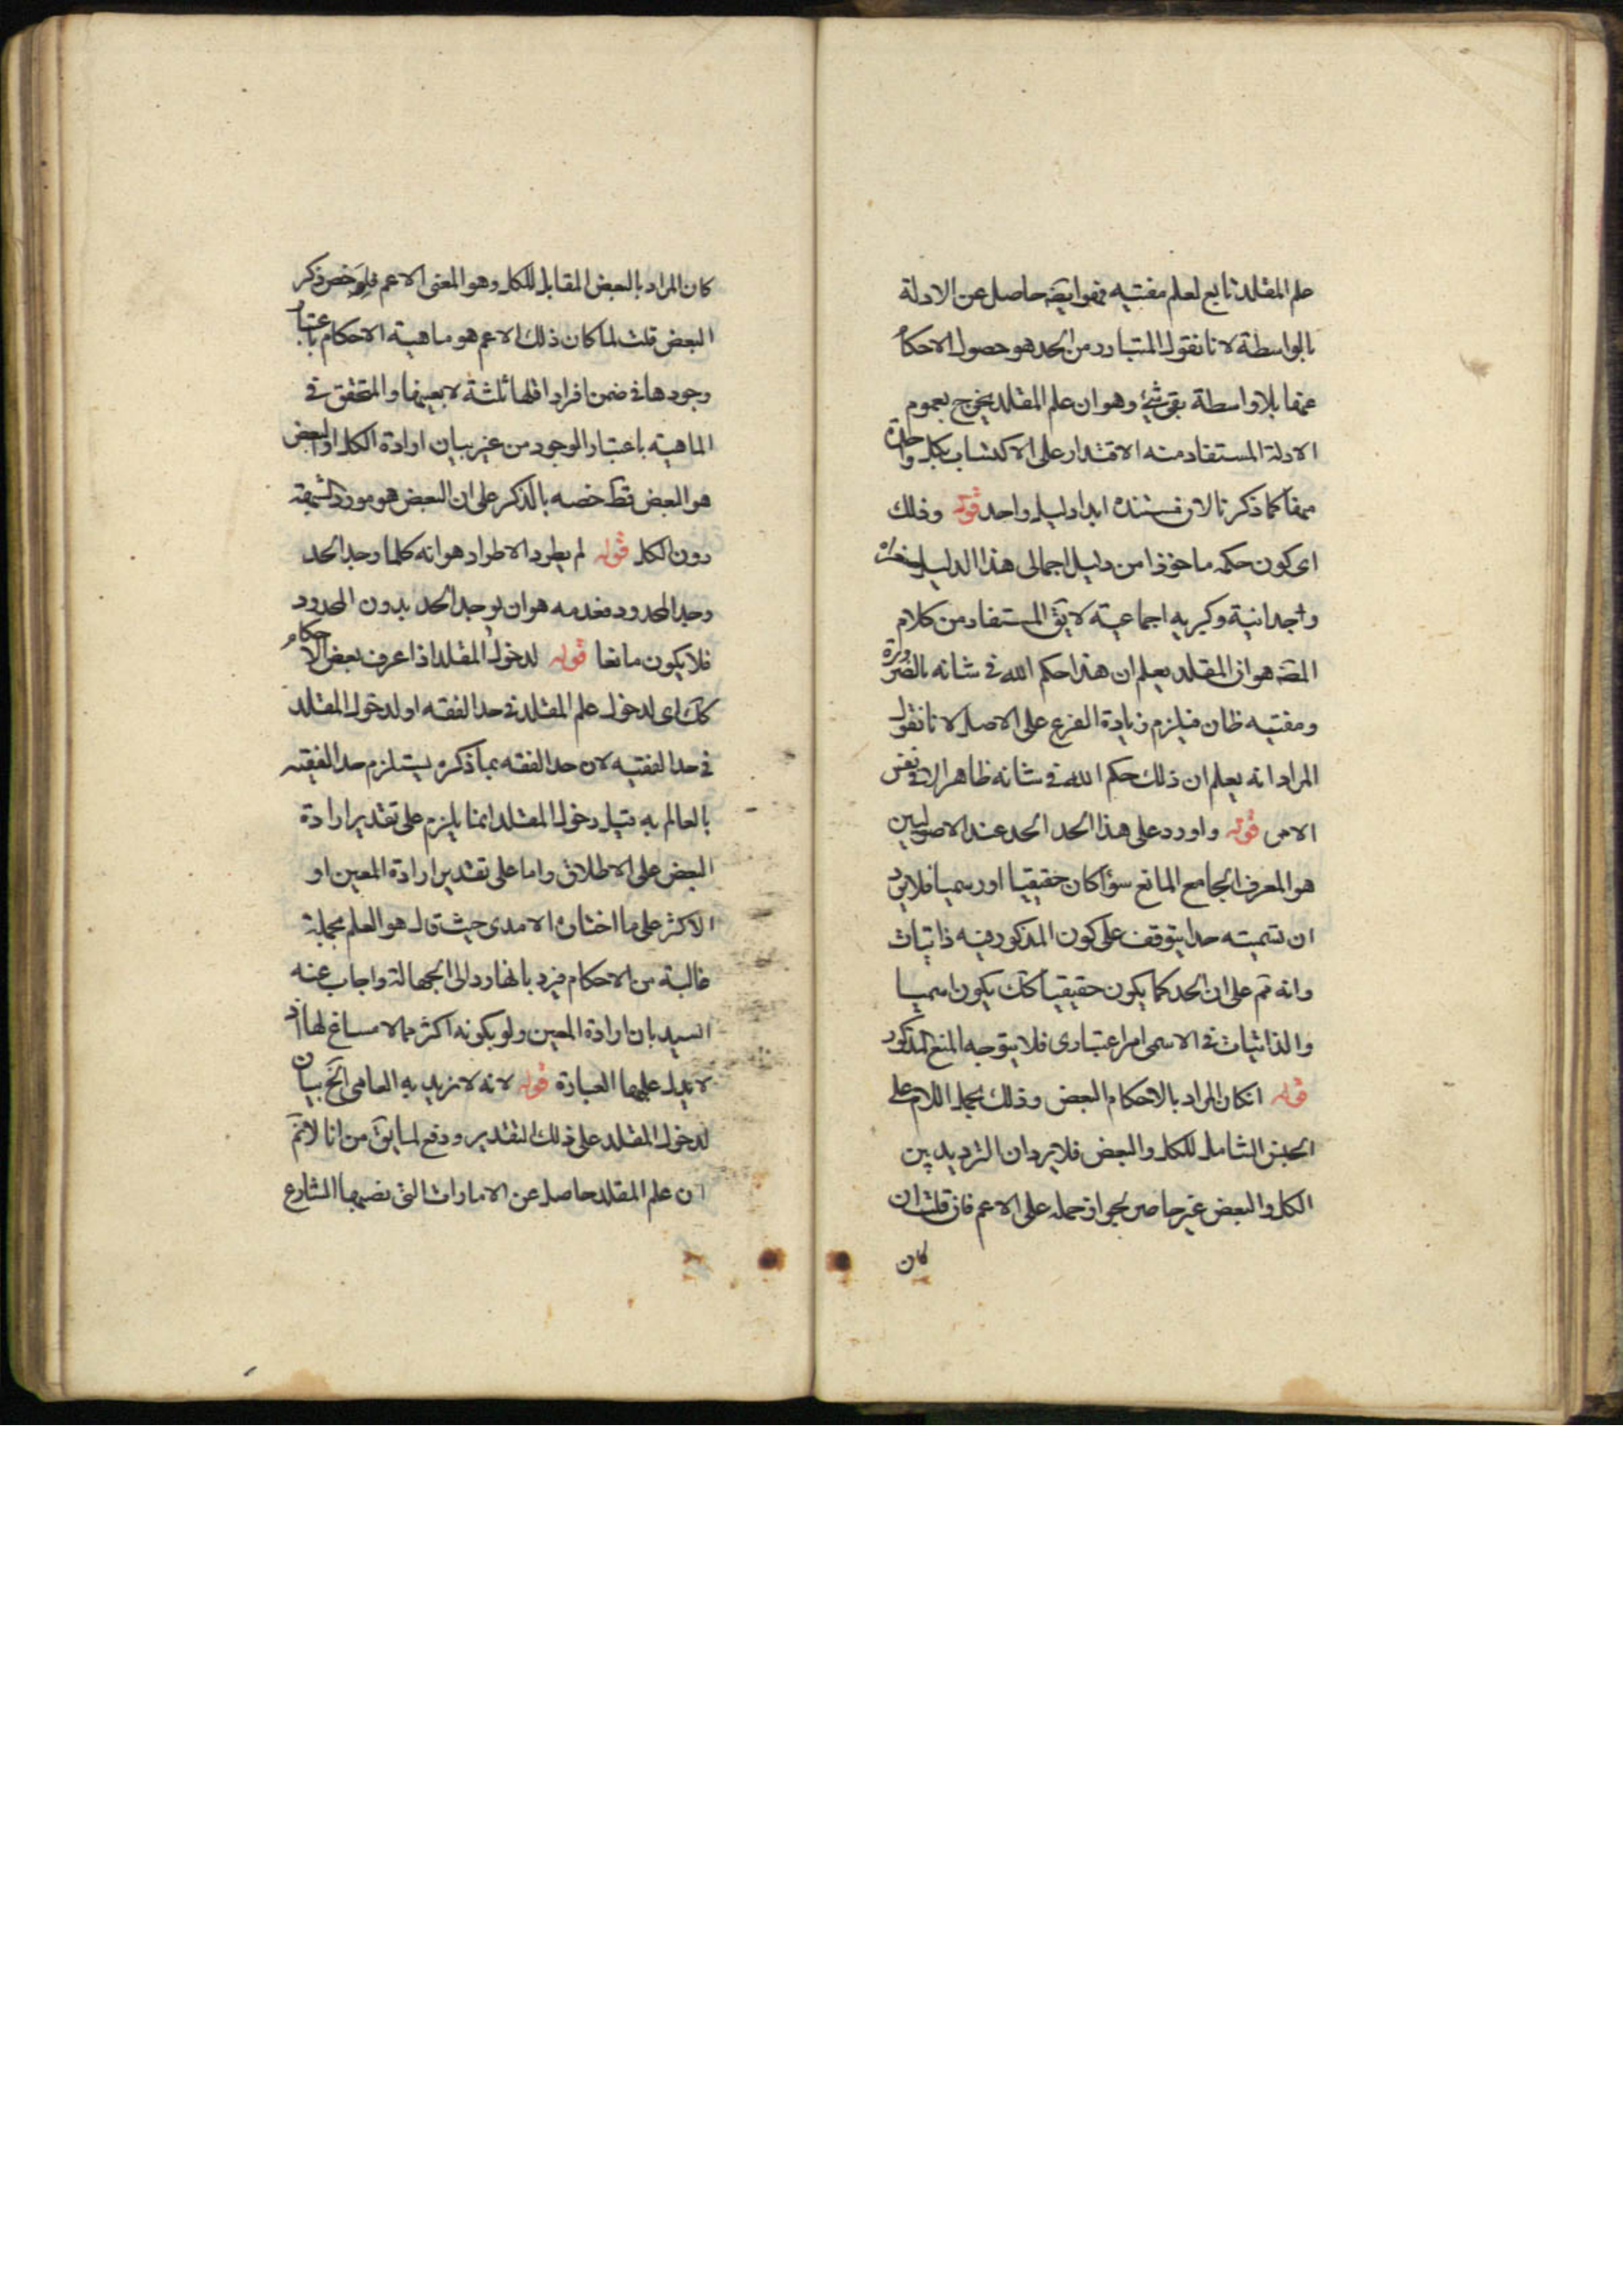 علم المقلد تابع لعلم مفتيه فهو ايضه حاصل عن الادلة
بالواسطة لانا نقول المتبادر من الحد هو حصول الاحكام
عنها بلا واسطة بقى شئ وهو ان علم المقلد يخرج بعموم
الادلة المستفاد منه الاقتدار على الاكتساب بكل واحدة
منها كما ذكرنا لان مستنده ابدا دليل واحد قوله وذلك
اى كون حكمه ماخوذا من دليل اجمالى هذا الدليل صغراه
وجدانية وكبريه اجماعية لا يق المستفاد من كلام
المص هو ان المقلد يعلم ان هذا حكم الله فى شانه بالضرورة
ومفتيه ظان فيلزم زيادة الفرع على الاصل لانا نقول
المراد انه يعلم ان ذلك حكم الله فى شانه ظاهرا لا فى نفس
الامر قوله واورد على هذا الحد الحد عند الاصوليين
هو المعرف الجامع المانع سوآء كان حقيقيا او رسميا فلا يرد
ان تسميته حدا يتوقف على كون المذكور فيه ذاتيات
وانه تم على ان الحد كما يكون حقيقيا كك يكون اسميا
والذاتيات فى الاسمى امر اعتبارى فلا يتوجه المنع المذكور
قوله ان كان المراد بالاحكام البعض وذلك بحمل اللام على
الجنس الشامل للكل والبعض فلا يرد ان الترديد بين
الكل والبعض غير حاصر لجواز حمله على الاعم فان قلت ان
كان
كان المراد بالبعض المقابل للكل وهو المعنى الاعم فلم خص ذكر
البعض قلت لما كان ذلك الاعم هو ماهية الاحكام باعتبار
وجودها فى ضمن افراد اقلها ثلثة لا بعينها والمتحقق فى
الماهية باعتبار الوجود من غير بيان ارادة الكل او البعض
هو البعض فقط خصه بالذكر على ان البعض هو مورد
دون الكل قوله لم يطرد الاطراد هو انه كلما وجد الحد
وجد المحدود فعدمه هو ان يوجد الحد بدون المحدود
فلا يكون مانعا قوله لدخول المقلد اذا عرف بعض الاحكام
كك اى لدخول علم المقلد فى حد الفقه او لدخول المقلد
فى حد الفقيه لان حد الفقه بما ذكره يستلزم حد الفقيه
بالعالم به قيل دخول المقلد انما يلزم على تقدير ارادة
البعض على الاطلاق واما على تقدير ارادة المعين او
الاكثر على ما اختاره الامدى حيث قال هو العلم بجملة
غالبة من الاحكام فيرد بانها رد الى الجهالة واجاب عنه
السيد بان ارادة المعين ولو بكونه اكثر مما لا مساغ لها اذ
لا يدل عليها العبارة قوله لانه لا نريد به العامى الخ بيان
لدخول المقلد على ذلك التقدير ودفع لما يق من انا لا نم
ان علم المقلد حاصل عن الامارات التى نصبها الشارع